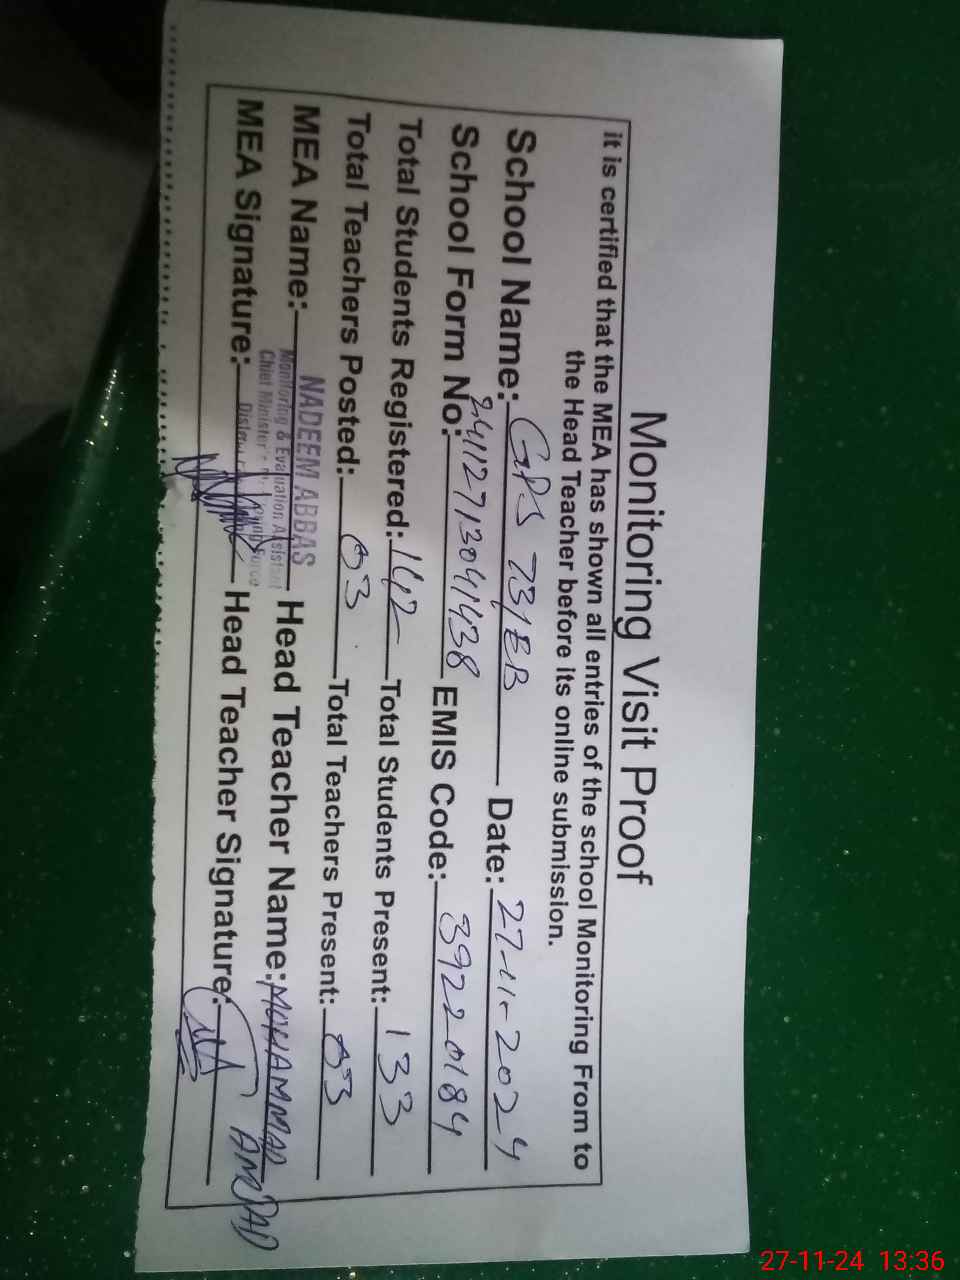 Monitoring Visit Proof
it is certified that the MEA has shown all entries of the school Monitoring From to
the Head Teacher before its online submission.
School Name: GPS 73/EB Date: 27-11-2024
School Form No: 24112713041438 EMIS Code: 39220184
Total Students Registered: 142 Total Students Present: 133
Total Teachers Posted: 03 Total Teachers Present: 03
MEA Name: NADEEM ABBAS Head Teacher Name: MUHAMMAD AMJAD
Monitoring & Evaluation Assistant
Chief Minister's Force
MEA Signature: Head Teacher Signature:
27-11-24 13:36